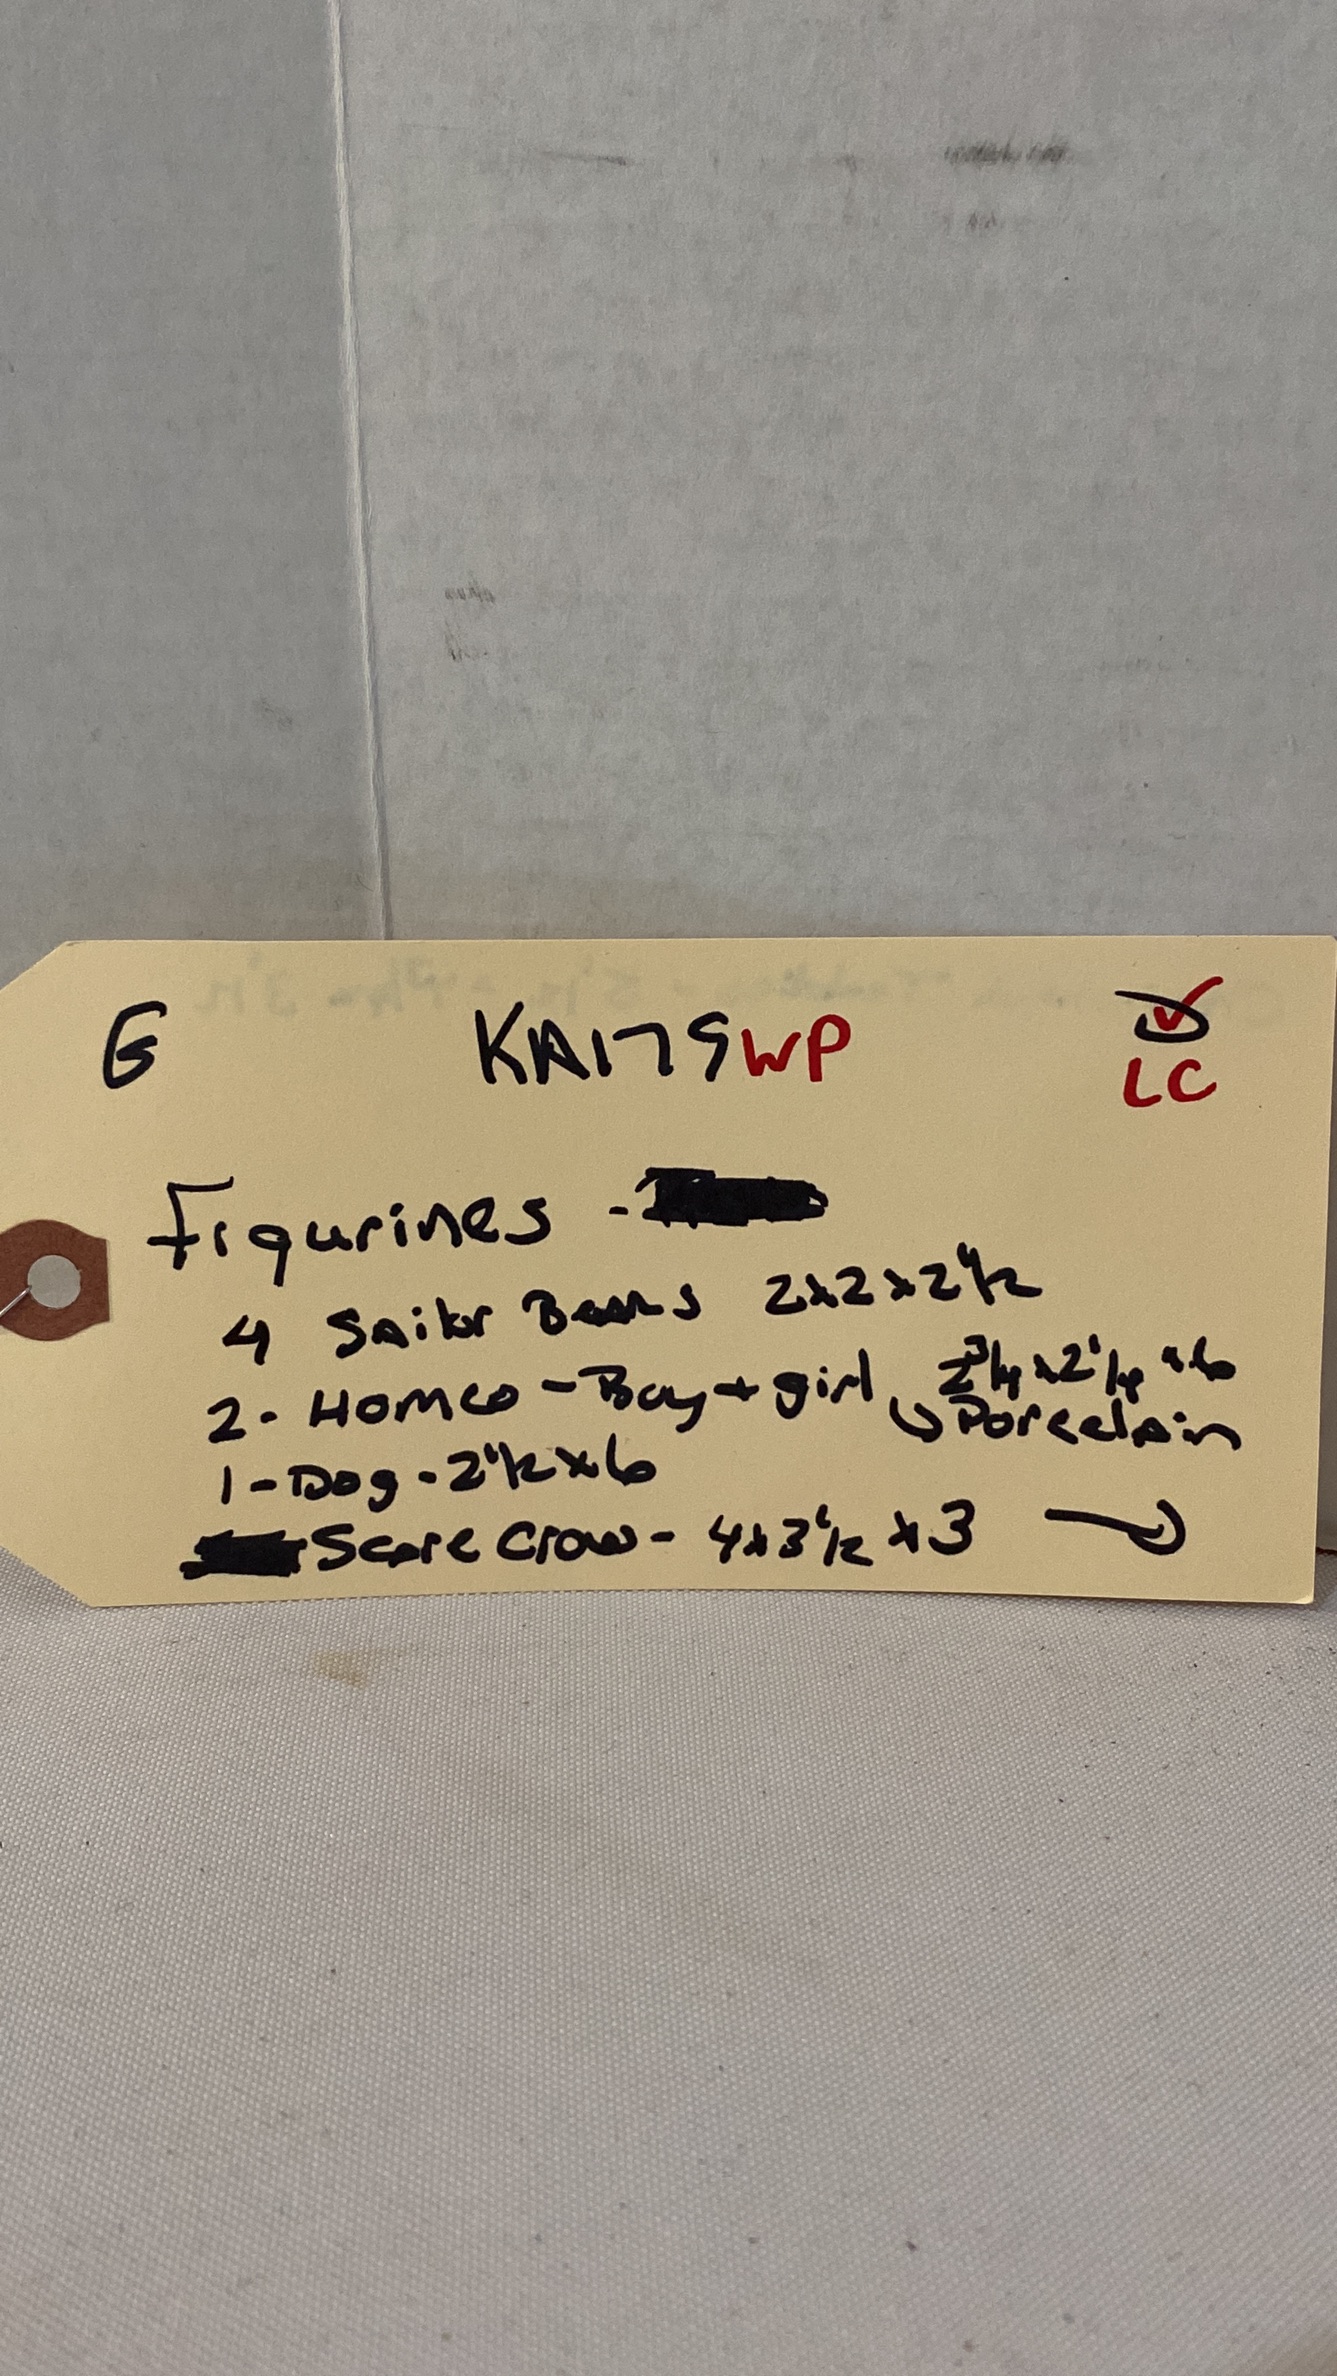 G KA179WP
LC
Figurines -
4 Sailor Bears 2x2x2 1/2
2- Homco - Boy + girl 2 3/4 x 2 1/4 x 6
Porcelain
1 - Dog - 2 1/2 x 6
Scare Crow - 4 x 3 1/2 x 3